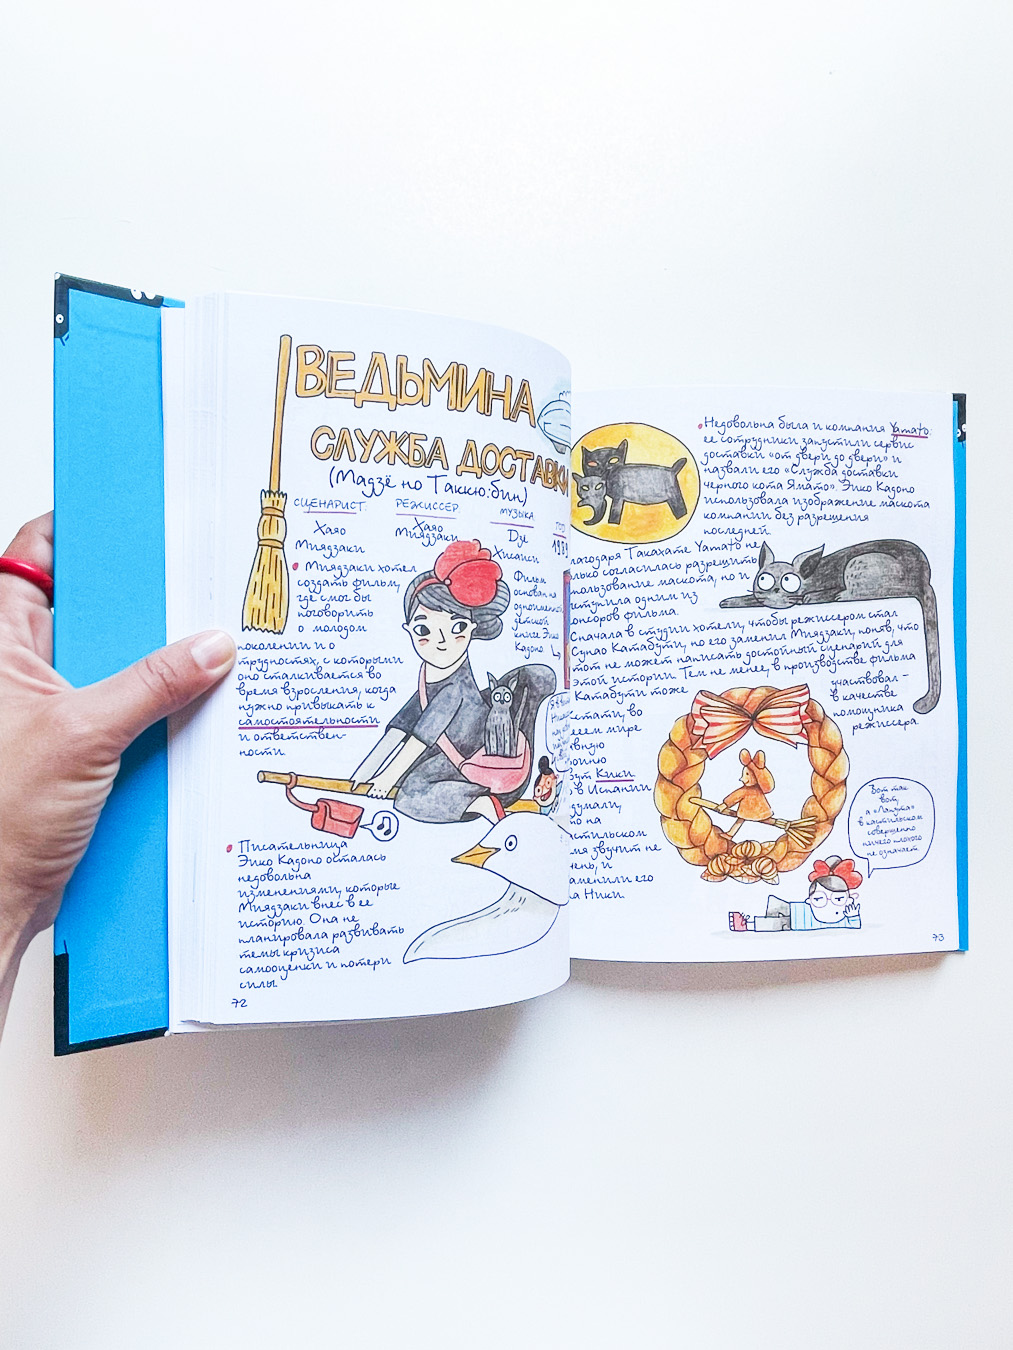 ВЕДЬМИНА
СЛУЖБА ДОСТАВКИ
(Мадзё но Таккю:бин)
СЦЕНАРИСТ
Хаяо
Миядзаки
РЕЖИССЕР
Хаяо
Миядзаки
МУЗЫКА
Дзё
Хисаиси
ГОД
1989
Миядзаки хотел
создать фильм,
где смог бы
поговорить
о молодом
поколении и о
трудностях, с которыми
оно сталкивается во
время взросления, когда
нужно привыкать к
самостоятельности
и ответствен-
ности.
Фильм
основан на
одноименной
детской
книге Эйко
Кадоно.
Писательница
Эйко Кадоно осталась
недовольна
изменениями, которые
Миядзаки внес в ее
историю. Она не
планировала развивать
темы кризиса
самооценки и потери
силы.
72
Недовольна была и компания Yamato:
ее сотрудники запустили сервис
доставки «от двери до двери» и
назвали его «Служба доставки
черного кота Ямато». Эйко Кадоно
использовала изображение маскота
компании без разрешения
последней.
лагодаря Такахате Yamato не
лько согласилась разрешить
пользование маскота, но и
ступила одним из
онсоров фильма.
Сначала в студии хотели, чтобы режиссером стал
Сунао Катабути, но его заменил Миядзаки, поняв, что
тот не может написать достойный сценарий для
этой истории. Тем не менее, в производстве фильма
Катабути тоже
участвовал –
в качестве
помощника
режиссера.
стати, во
всем мире
авную
оиню
вут Кики.
в Испании
думали,
то на
астильском
мя звучит не
чень, и
аменили его
а Ники.
Вот так
вот,
а «Лапута»
в кастильском
совершенно
ничего плохого
не означает
73